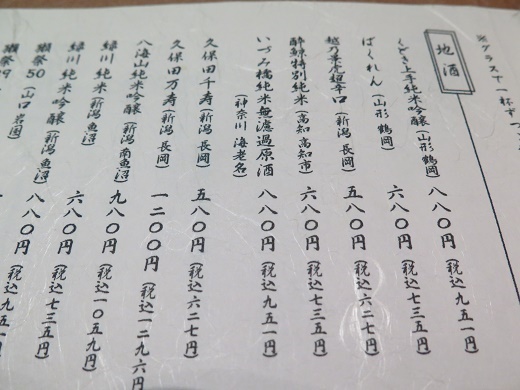 ※グラス一杯ず
地酒
くどき上手純米吟醸(山形 鶴岡) 八八〇円 (税込 九五一円)
ばくれん (山形 鶴岡) 六八〇円 (税込 七三五円)
越乃景虎超辛口 (新潟 長岡) 五八〇円 (税込 六二七円)
酔鯨特別純米 (高知 高知市) 六八〇円 (税込 七三五円)
いづみ橋純米無濾過原酒 (神奈川 海老名) 八八〇円 (税込 九五一円)
久保田千寿 (新潟 長岡) 五八〇円 (税込 六二七円)
久保田万寿 (新潟 長岡) 一二〇〇円 (税込 一二九六円)
八海山純米吟醸 (新潟 南魚沼) 九八〇円 (税込 一〇五九円)
緑川純米 (新潟 魚沼) 六八〇円 (税込 七三五円)
緑川純米吟醸 (新潟 魚沼) 八八〇円 (税込 九五一円)
獺祭50 (山口 岩国) 八八〇円 (税込 九五一
獺祭39